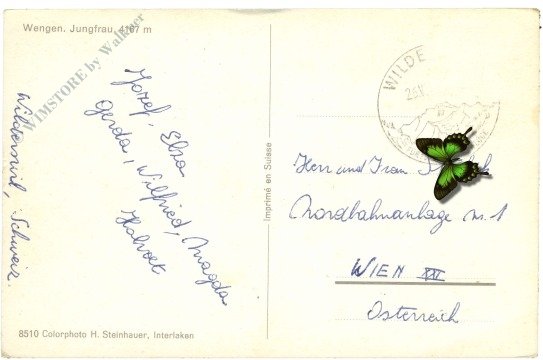 Wengen. Jungfrau, 4167 m
WIMSTORE by Walkner
Josef, Elsa
Gerda, Wilfried, Magda
Wilderswil, Schweiz
8510 Colorphoto H. Steinhauer, Interlaken
Imprimé en Suisse
WILDE
Herr und Frau
Nordbahnanlage Nr. 1
WIEN XXI
Österreich